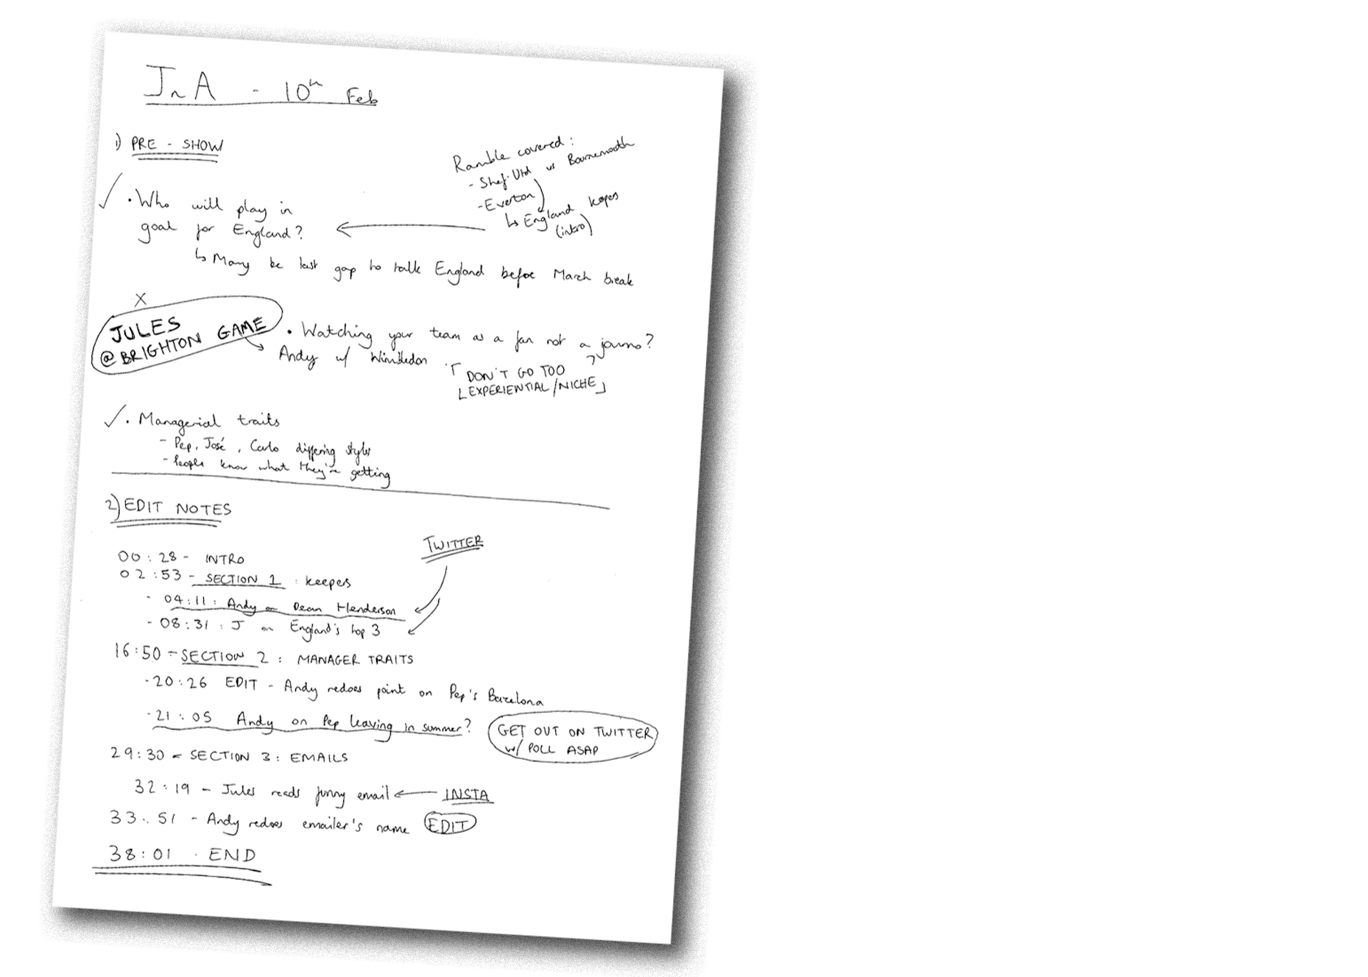 JnA - 10th Feb
1) PRE - SHOW
Ramble covered:
- Shef Utd vs Bournemouth
- Everton
↳ England keepers
(intro)
✓ • Who will play in
goal for England?
↳ Many be last gap to talk England before March break
X
JULES
@ BRIGHTON GAME
• Watching your team as a fan not a journo?
Andy w/ Wimbledon
DON'T GO TOO
EXPERIENTIAL/NICHE
✓ • Managerial traits
- Pep, José, Carlo differing styles
- People know what they're getting
2) EDIT NOTES
TWITTER
00:28 - INTRO
02:53 - SECTION 1 : keepers
- 04:11 : Andy on Dean Henderson
- 08:31 : J on England's top 3
16:50 - SECTION 2 : MANAGER TRAITS
- 20:26 EDIT - Andy redoes point on Pep's Barcelona
- 21:05 Andy on Pep leaving in summer?
GET OUT ON TWITTER
w/ POLL ASAP
29:30 - SECTION 3 : EMAILS
32:19 - Jules reads funny email ← INSTA
33:51 - Andy redoes emailer's name EDIT
38:01 . END